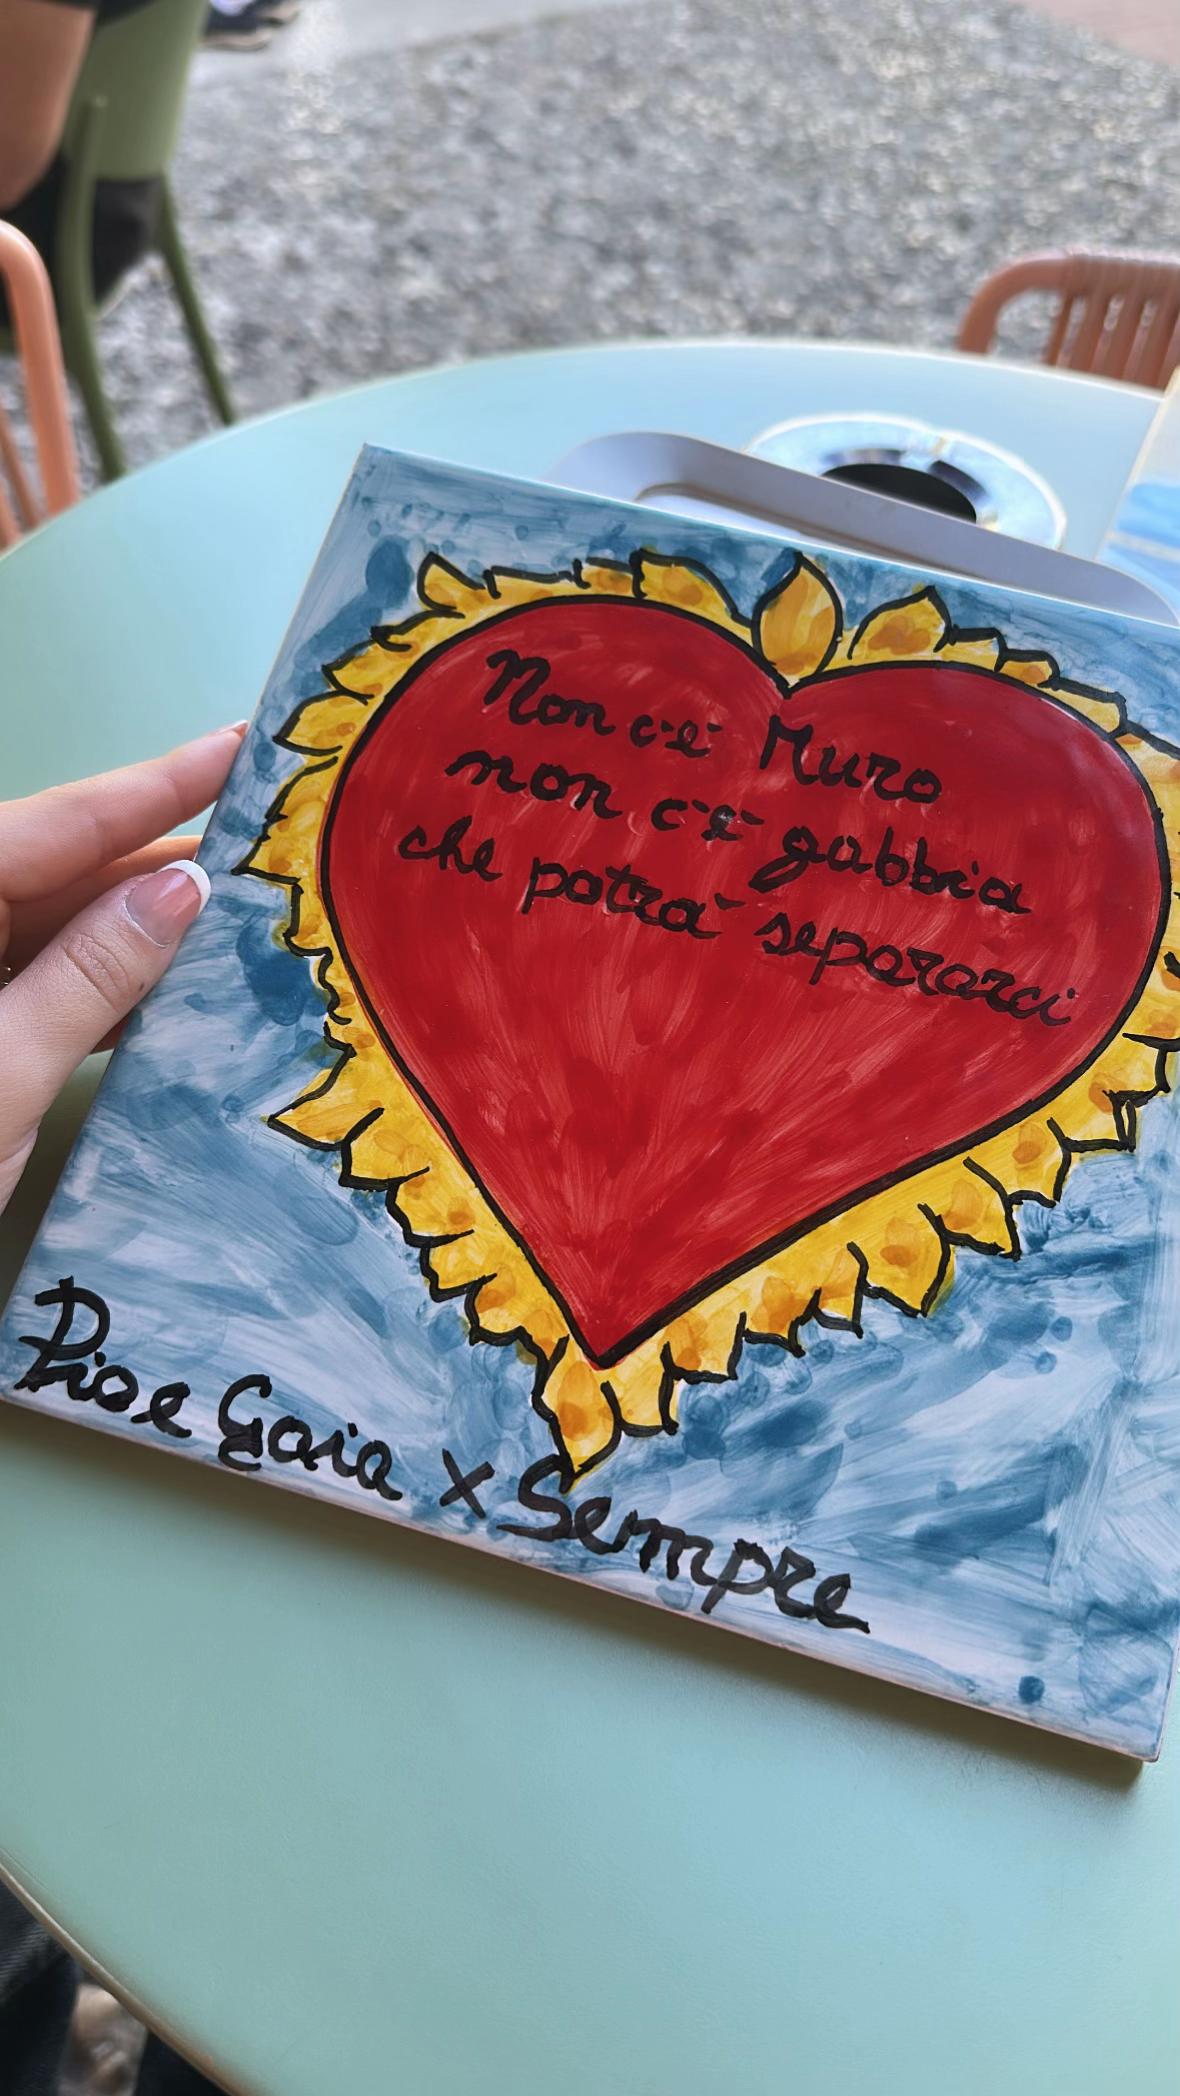 Non c'è Muro
non c'è gabbia
che potrà separarci
Pio e Gaia x Sempre